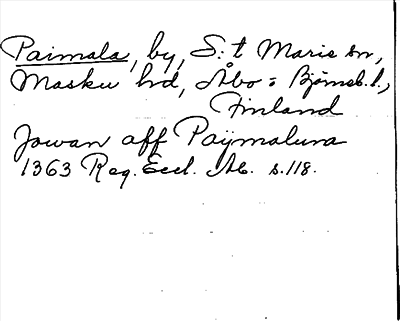 Paimala, by, S:t Marie sn,
Masku hd, Åbo = Björneb. l.,
Finland
Jowan aff Paÿmalura
1363 Reg. Eccl. Ab. s. 118.